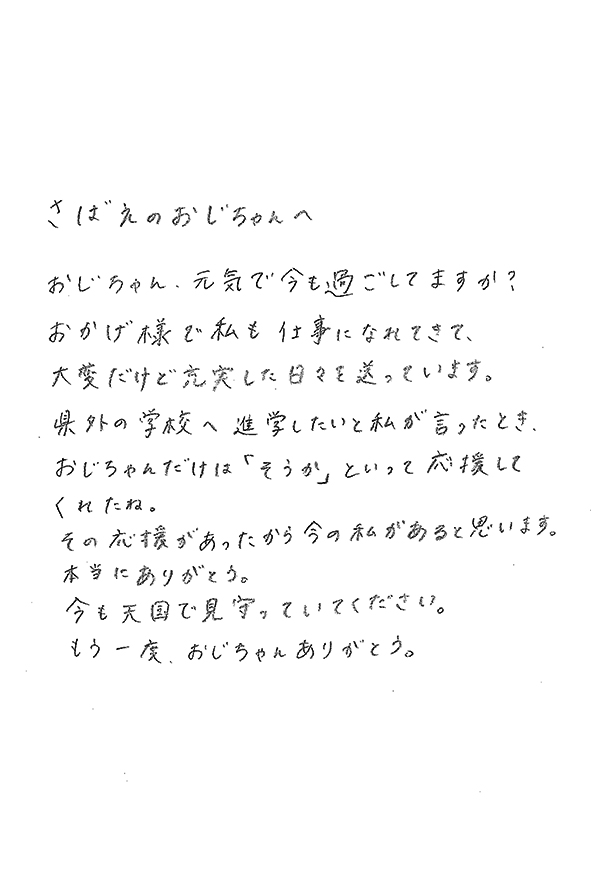 さばえのおじちゃんへ
おじちゃん、元気で今も過ごしてますか？
おかげ様で私も仕事になれてきて、
大変だけど充実した日々を送っています。
県外の学校へ進学したいと私が言ったとき、
おじちゃんだけは「そうか」といって応援して
くれたね。
その応援があったから今の私があると思います。
本当にありがとう。
今も天国で見守っていてください。
もう一度、おじちゃんありがとう。